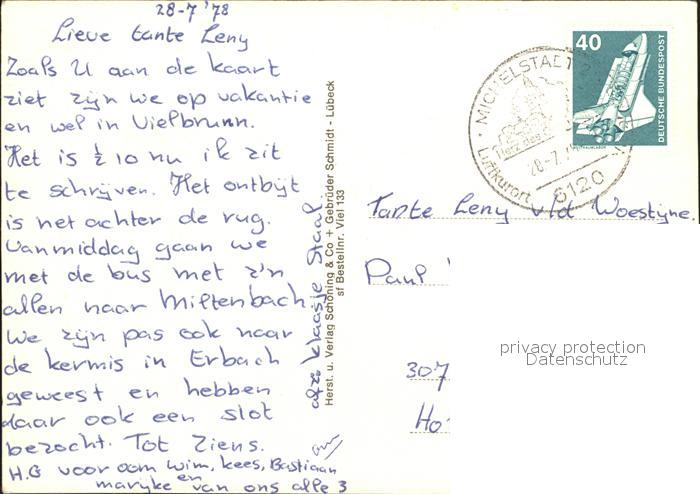 28-7 '78
Lieve tante Leny
Zoals U aan de kaart
ziet zijn we op vakantie
en wel in Vielbrunn.
Het is ½ 10 nu ik zit
te schrijven. Het ontbijt
is net achter de rug.
Vanmiddag gaan we
met de bus met z'n
allen naar Miltenbach.
We zijn pas ook naar
de kermis in Erbach
geweest en hebben
daar ook een slot
bezocht. Tot Ziens.
H.G voor oom Wim, Kees, Bastiaan
en
marijke van ons alle 3
afz. Klaasje Staal.
Herst. u. Verlag Schöning & Co + Gebrüder Schmidt - Lübeck
sf Bestellnr. Viel 133
MICHELSTADT
28-7
Luftkurort
6120
40
DEUTSCHE BUNDESPOST
Tante Leny v/d Woestijne.
Paul
307
Ho
privacy protection
Datenschutz